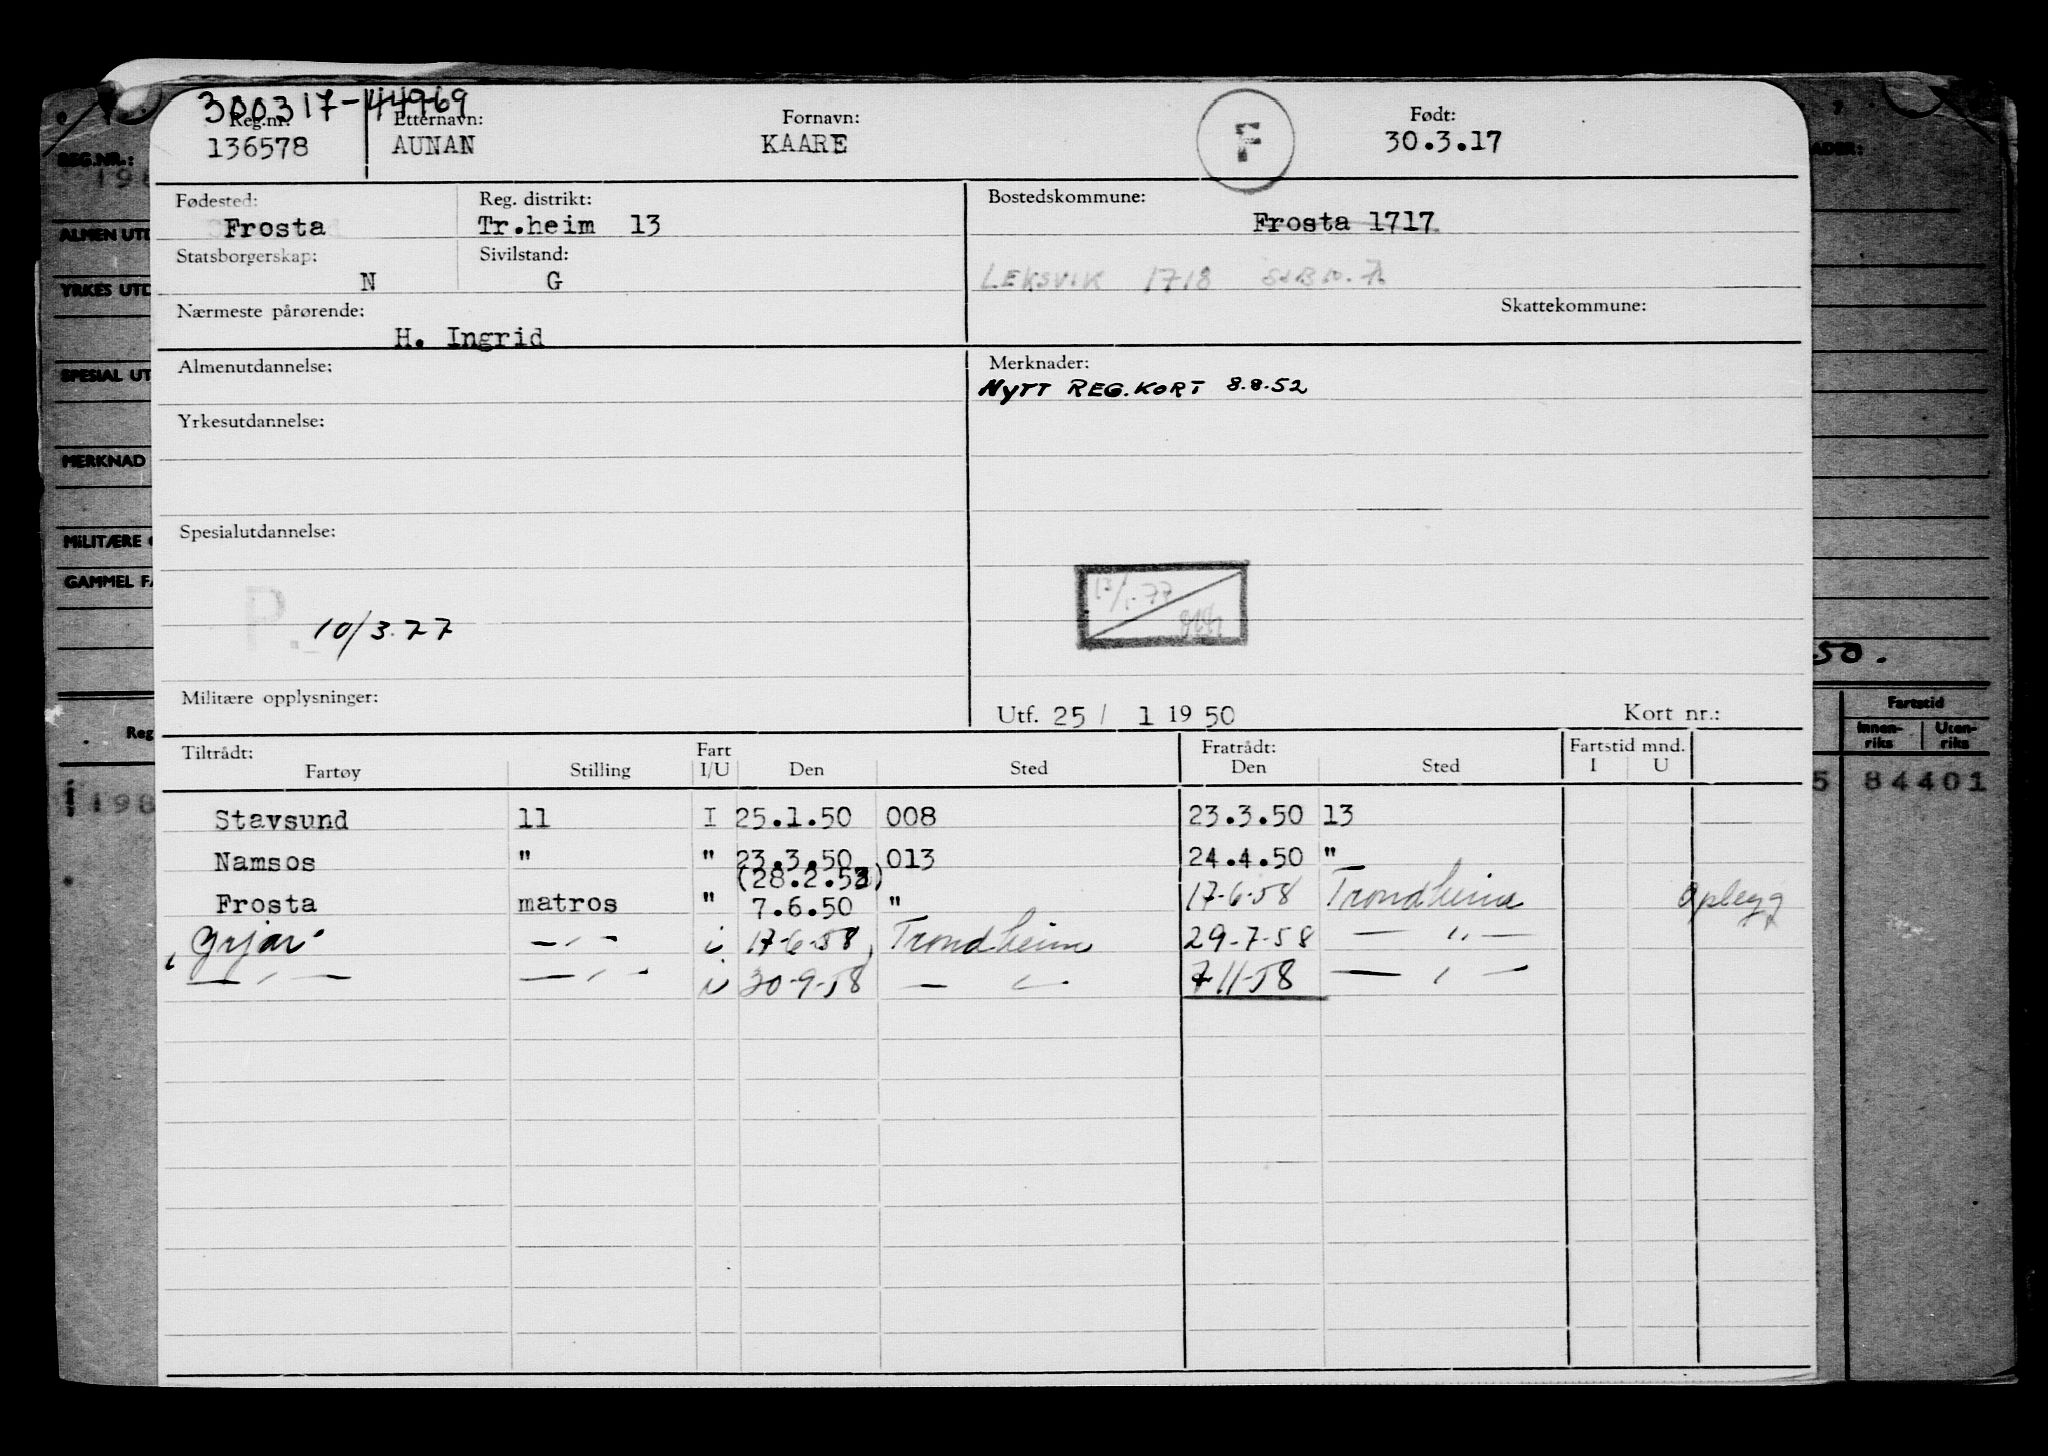 300317-44969
Reg.nr. Etternavn: Fornavn: F Født:
136578 AUNAN KAARE 30.3.17
Fødested: Reg. distrikt: Bostedskommune:
Frosta Tr.heim 13 Frosta 1717
Statsborgerskap: Sivilstand:
N G LEKSVIK 1718
Nærmeste pårørende: Skattekommune:
H. Ingrid
Almenutdannelse: Merknader:
NYTT REG.KORT 8.8.52
Yrkesutdannelse:
Spesialutdannelse:
P. 10/3.77
Militære opplysninger: Utf. 25 / 1 19 50 Kort nr.:
Tiltrådt: Fart Fratrådt: Fartstid mnd.
Fartøy Stilling I/U Den Sted Den Sted I U
Stavsund 11 I 25.1.50 008 23.3.50 13
Namsos " " 23.3.50 013 24.4.50 "
Frosta matros " 7.6.50 " 17-6-58 Trondheim Oplegg
17-6-58 Trondheim 29-7-58 — " —
— " — — " — 30-9-58 — " — 7-11-58 — " —
REG.NR.:
ALMEN UTD
YRKES UTD
SPESIAL UT
MERKNAD
MILITÆRE
GAMMEL FA
Reg
198
50.
Fartstid
Innen-riks Uten-riks
5 84401